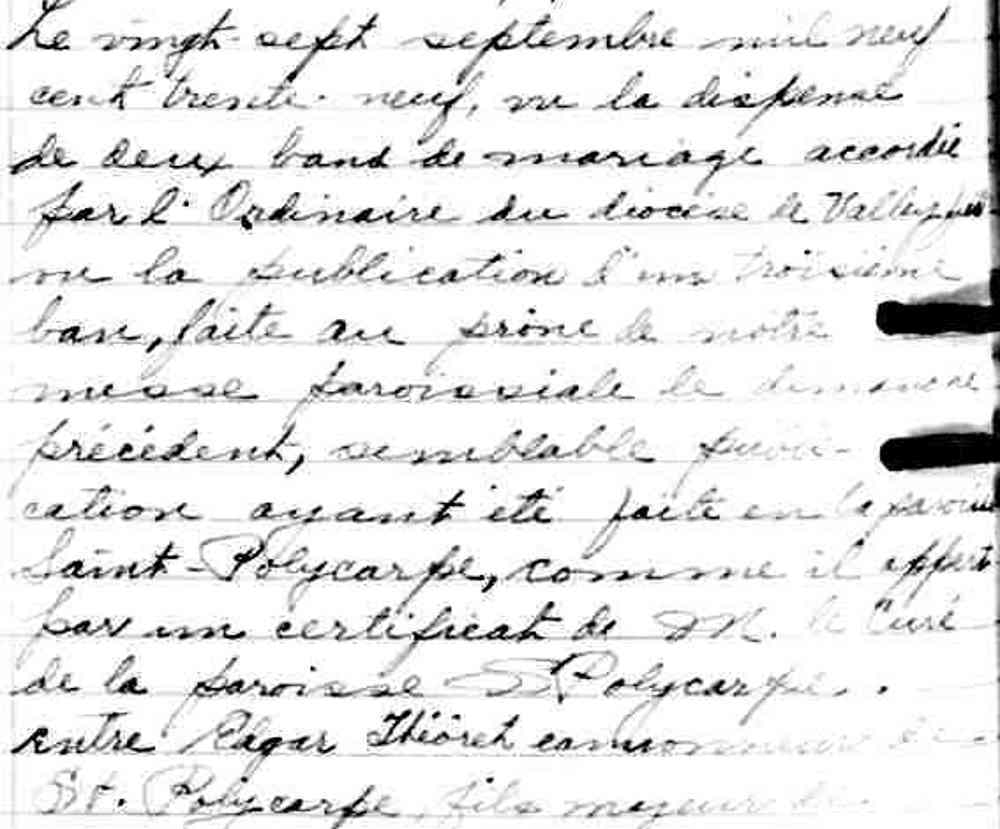 Le vingt-sept septembre mil neuf
cent trente-neuf, vu la dispense
de deux band de mariage accordée
par l'Ordinaire du diocèse de Valleyfield
vu la publication d'un troisième
ban, faite au prône de notre
messe paroissiale le dimanche
précédent, semblable publi-
cation ayant été faite en la paroisse
Saint-Polycarpe, comme il appert
par un certificat de M. le Curé
de la paroisse St Polycarpe.
entre Edgar Théoret camionneur de
St. Polycarpe, fils majeur de